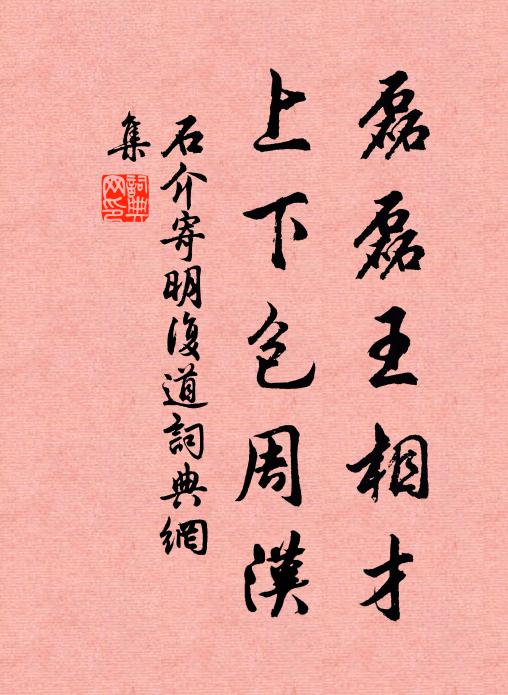 磊磊王相才
上下包周漢
石介寄明復道詞典網
集
詞典
网印